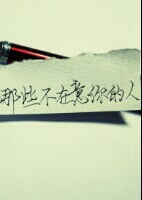 那些不在意你的人